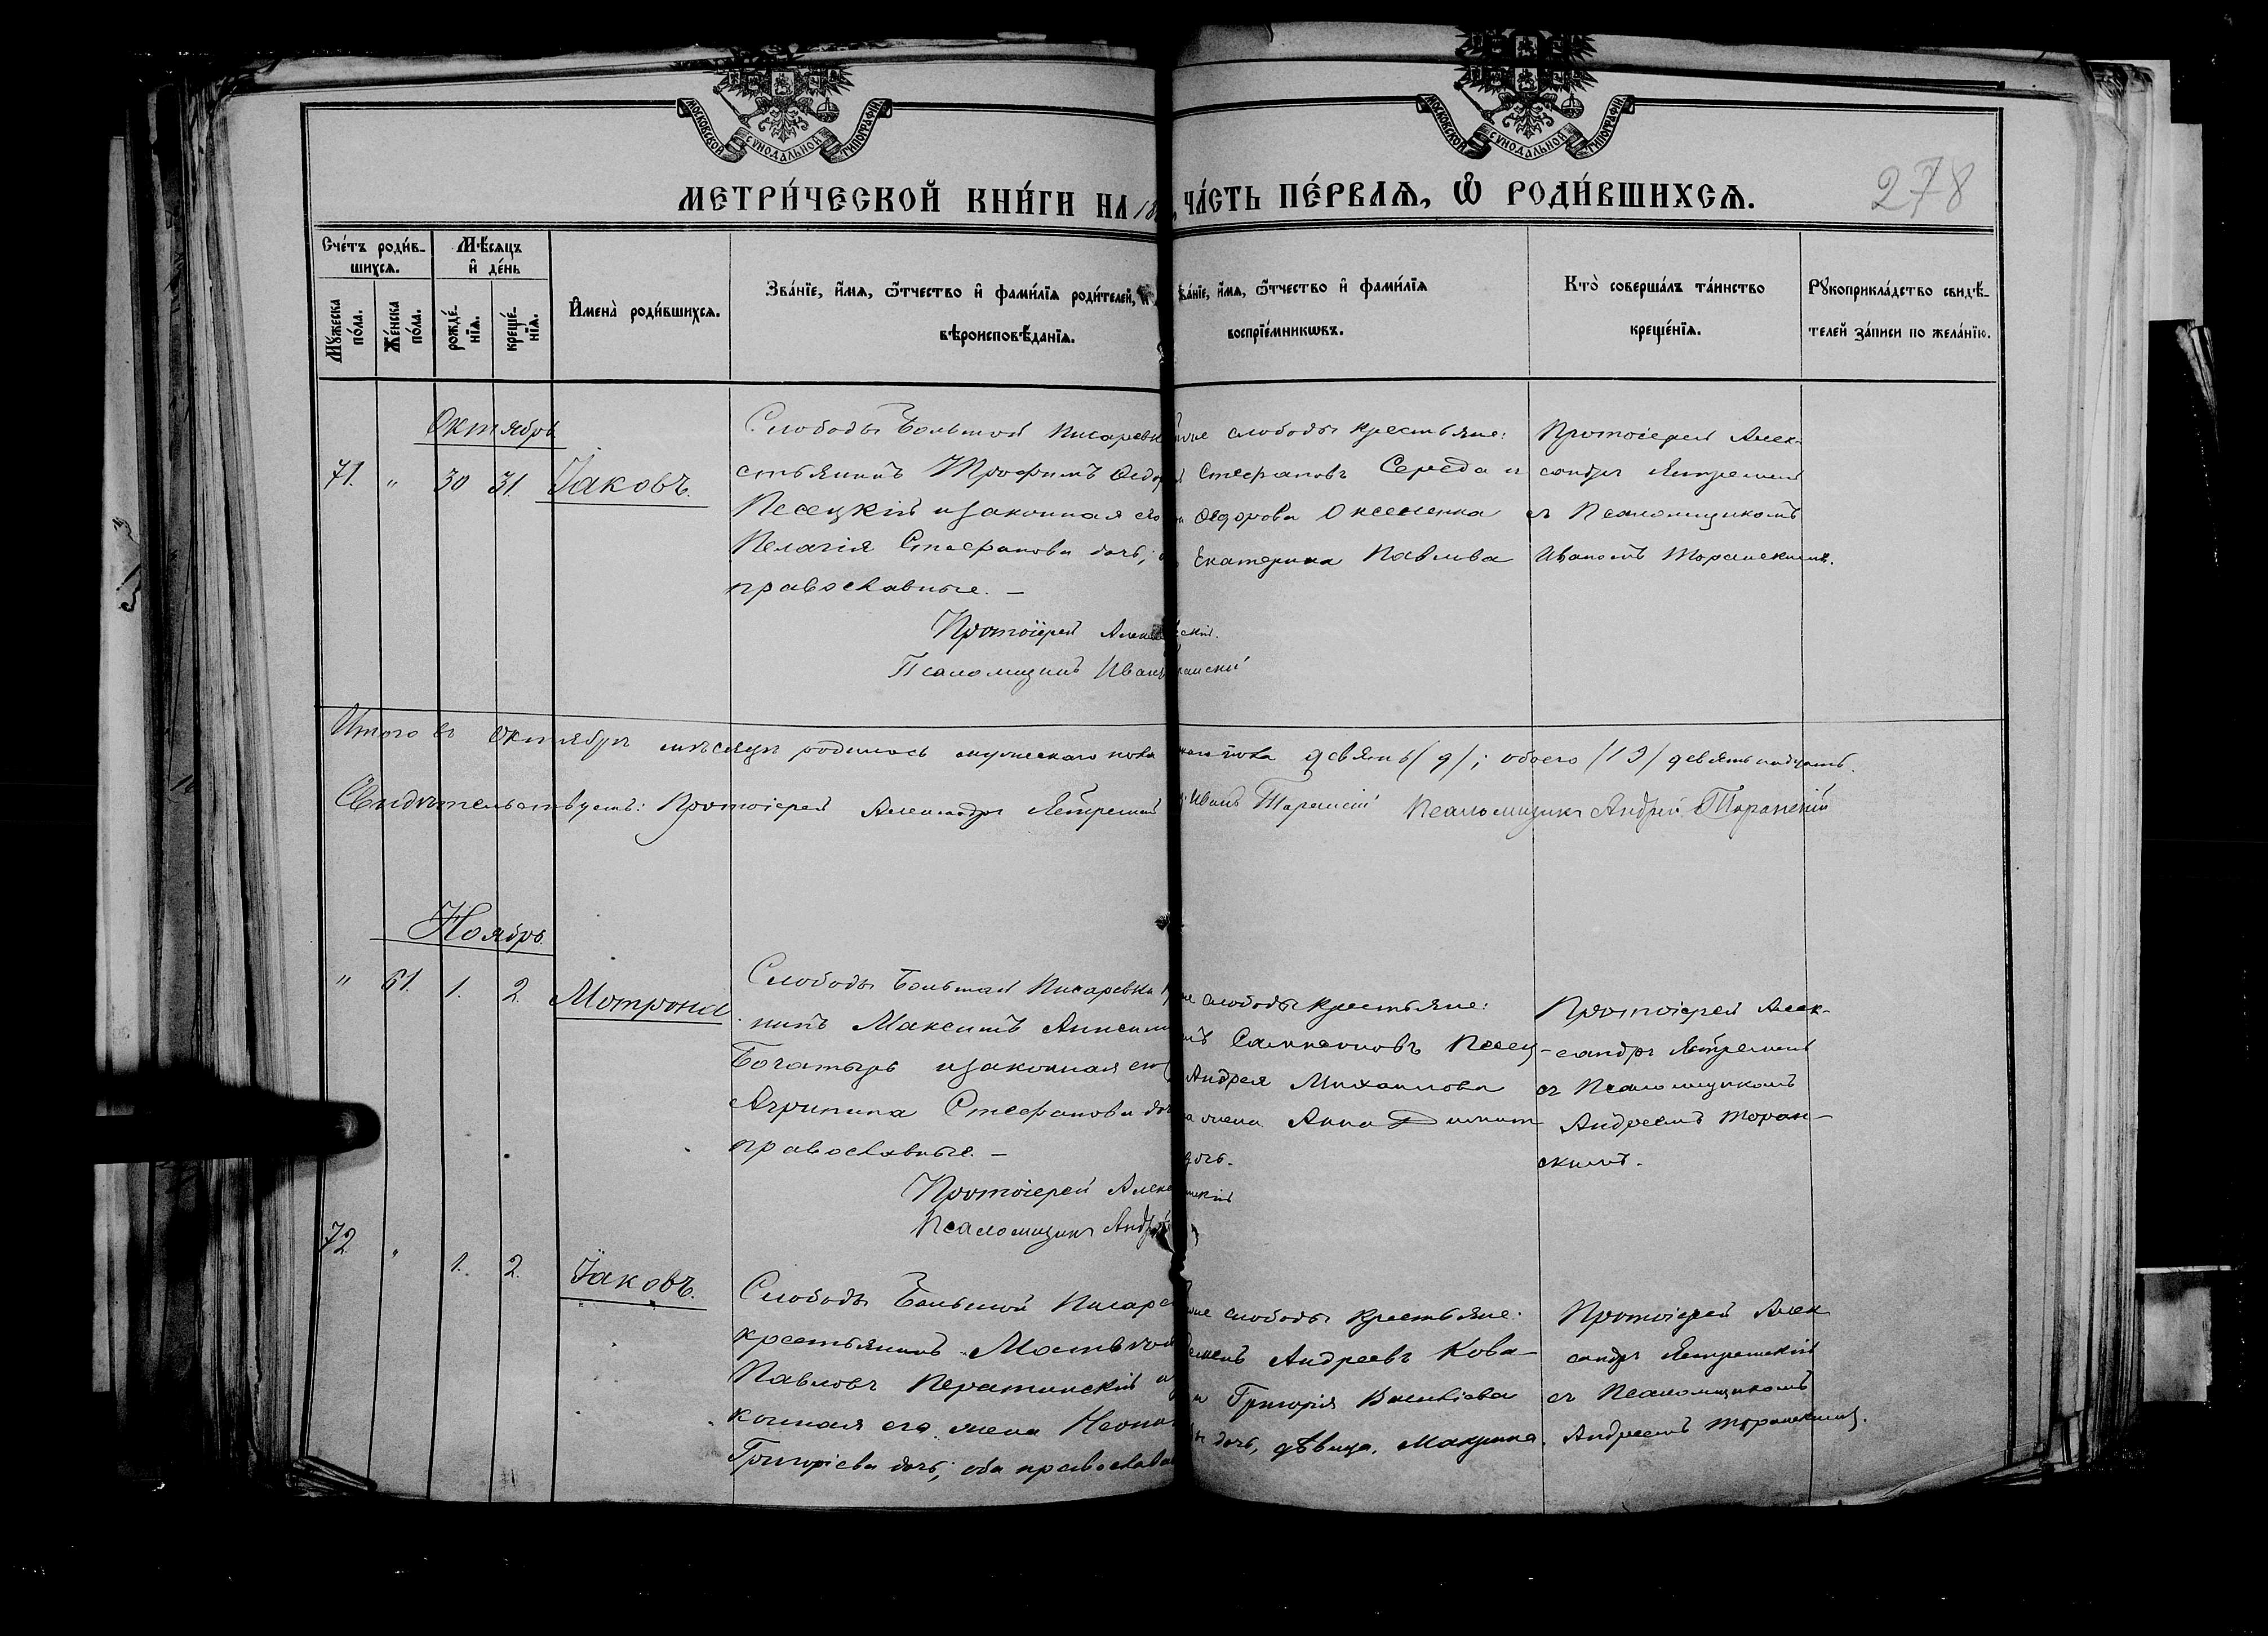 МОСКОВСКОЙ СѴНОДАЛЬНОЙ ТИПОГРАФІИ
МОСКОВСКОЙ СѴНОДАЛЬНОЙ ТИПОГРАФІИ
МЕТРИ́ЧЕСКОЙ КНИ́ГИ НА 18
ЧА́СТЬ ПЕ́РВАѦ, Ѽ РОДИ́ВШИХСѦ.
278
Сче́тъ роди́в-
шихсѧ.
Мѣ́сѧцъ
и҆ де́нь
Мꙋ́жеска по́ла.
Же́нска по́ла.
рожде́-нїѧ.
креще́-нїѧ.
И҆мена̀ роди́вшихсѧ.
Зва́нїе, и҆́мѧ, ѻ҆́тчество и҆ фами́лїѧ роди́телей, и҆
вѣроисповѣ́данїѧ.
ва́нїе, и҆́мѧ, ѻ҆́тчество и҆ фами́лїѧ
воспрїе́мникѡвъ.
Кто̀ соверша́лъ та́инство
креще́нїѧ.
Рꙋкоприкла́дство свидѣ́-
телей за́писи по жела́нїю.
Октябрь
71. " 30 31 Іаковъ.
Слободы Большой Писаревк
стьянинъ Трофимъ Ѳедор
Песецкій и законная его
Пелагія Стефанова дочь;
православные. –
Протоіерей Алек
Псаломщикъ Иван
слободы крестьяне:
Стефановъ Середа и
Ѳедорова Оксененка
Екатерина Павлова
Протоіерей Алек-
сандръ
съ Псаломщикомъ
Иваномъ Торанскимъ.
Итого въ Октябрѣ мѣсяцѣ родилось мужескаго пола
пола девять /9/; обоего /19/ девятнадцать.
Свидѣтельствуютъ: Протоіерей Александръ
Иванъ Торанскій Псаломщикъ Андрей Торанскій
Ноябрь.
" 61. 1. 2. Мотрона
Слободы Большой Писаревки
нинъ Максимъ Анисим
Богатырь и законная его
Агрипина Стефанова доч
православные. –
Протоіерей Алек
Псаломщикъ Андрей
слободы крестьяне:
Сампсоновъ Песец-
Андрея Михаилова
жена Анна Димит
дочь.
Протоіерей Алек-
сандръ
съ Псаломщикомъ
Андреемъ Торан-
скимъ.
72 " 1. 2. Іаковъ.
Слободы Большой Писаре
крестьянинъ
Павловъ
конная его жена
Григоріева дочь; оба православн
слободы крестьяне:
Андреевъ Кова-
Григорія Василіева
дочь, дѣвица, Макрина.
Протоіерей Алек
сандръ
съ Псаломщикомъ
Андреемъ Торанскимъ.